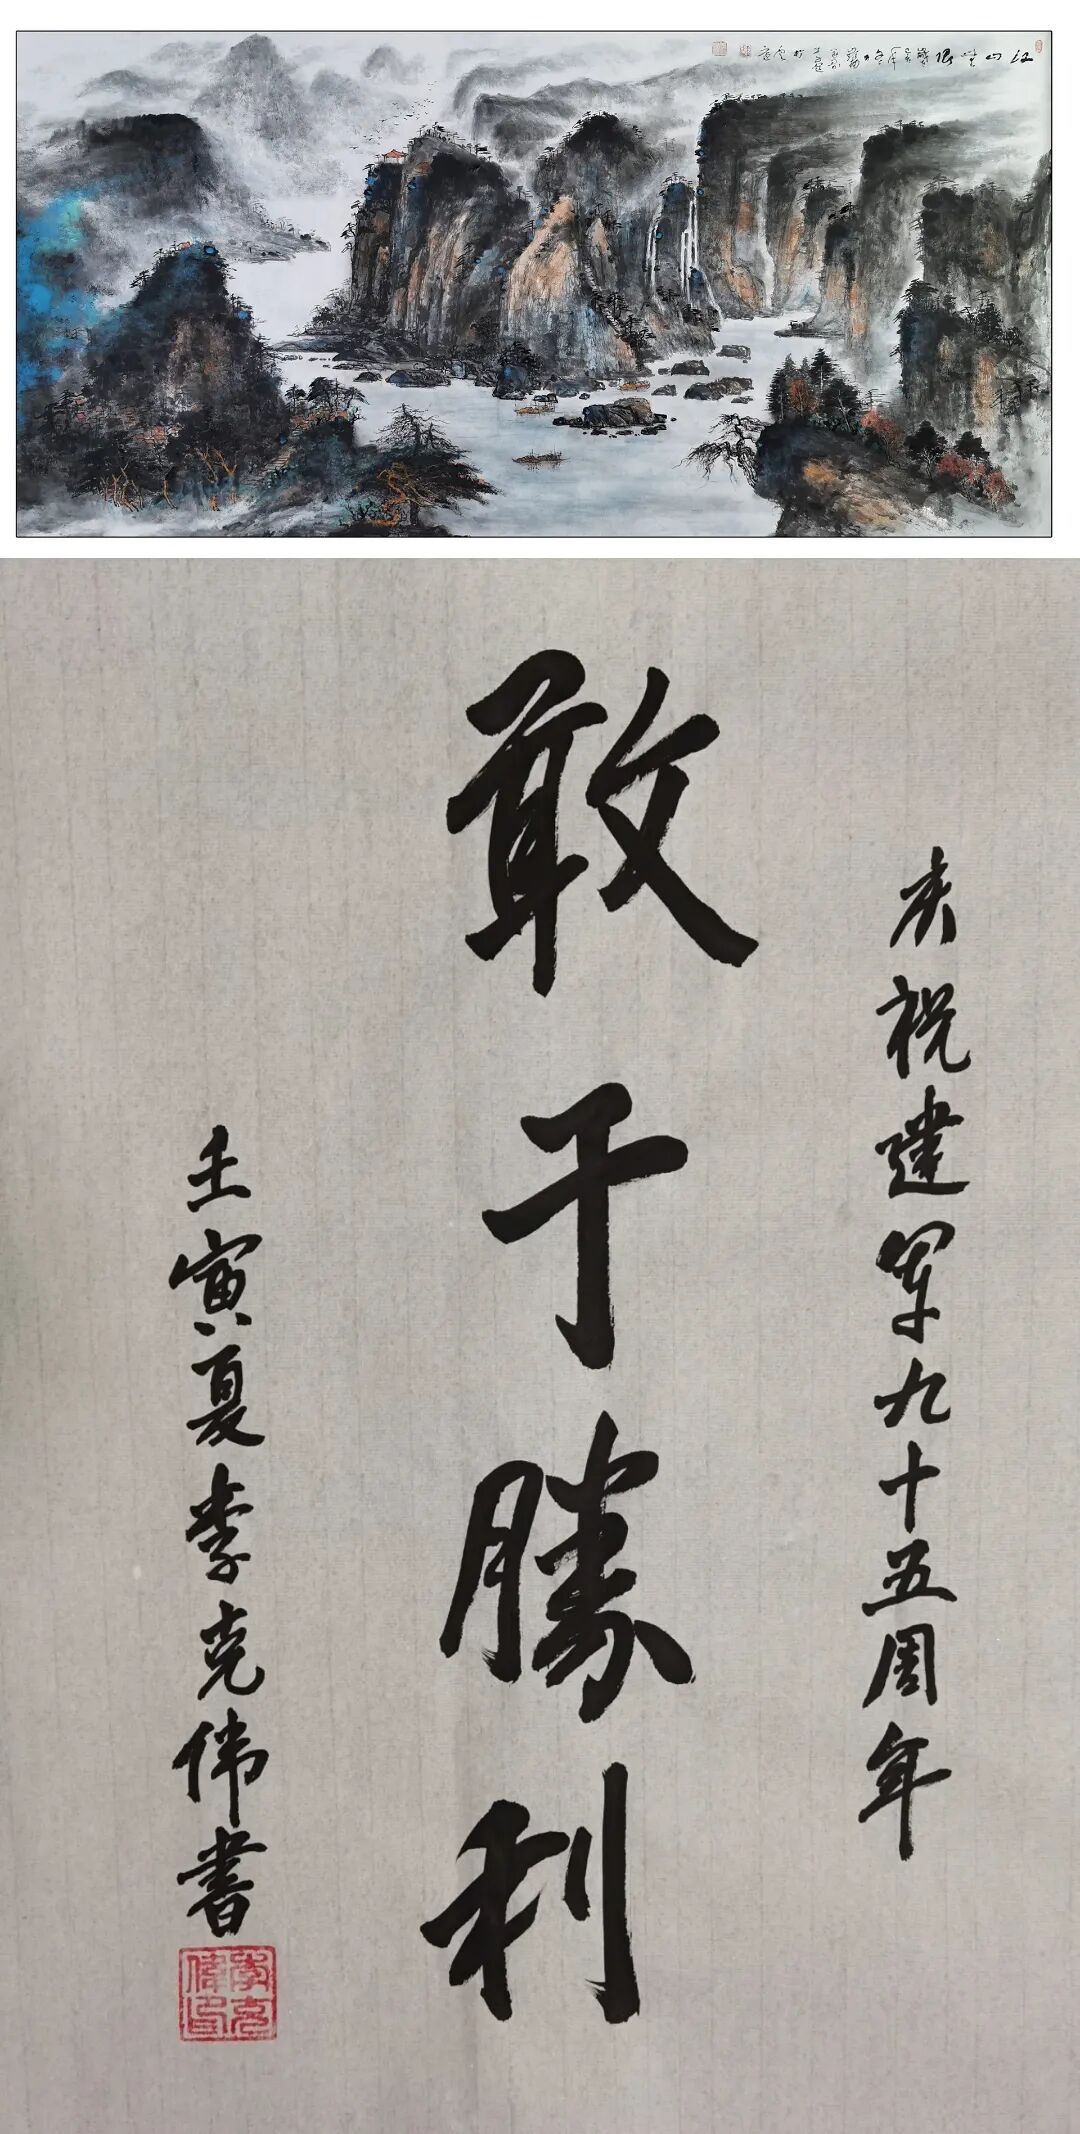 江山
庆祝建军九十五周年
敢于勝利
壬寅夏李克伟書
李克偉印